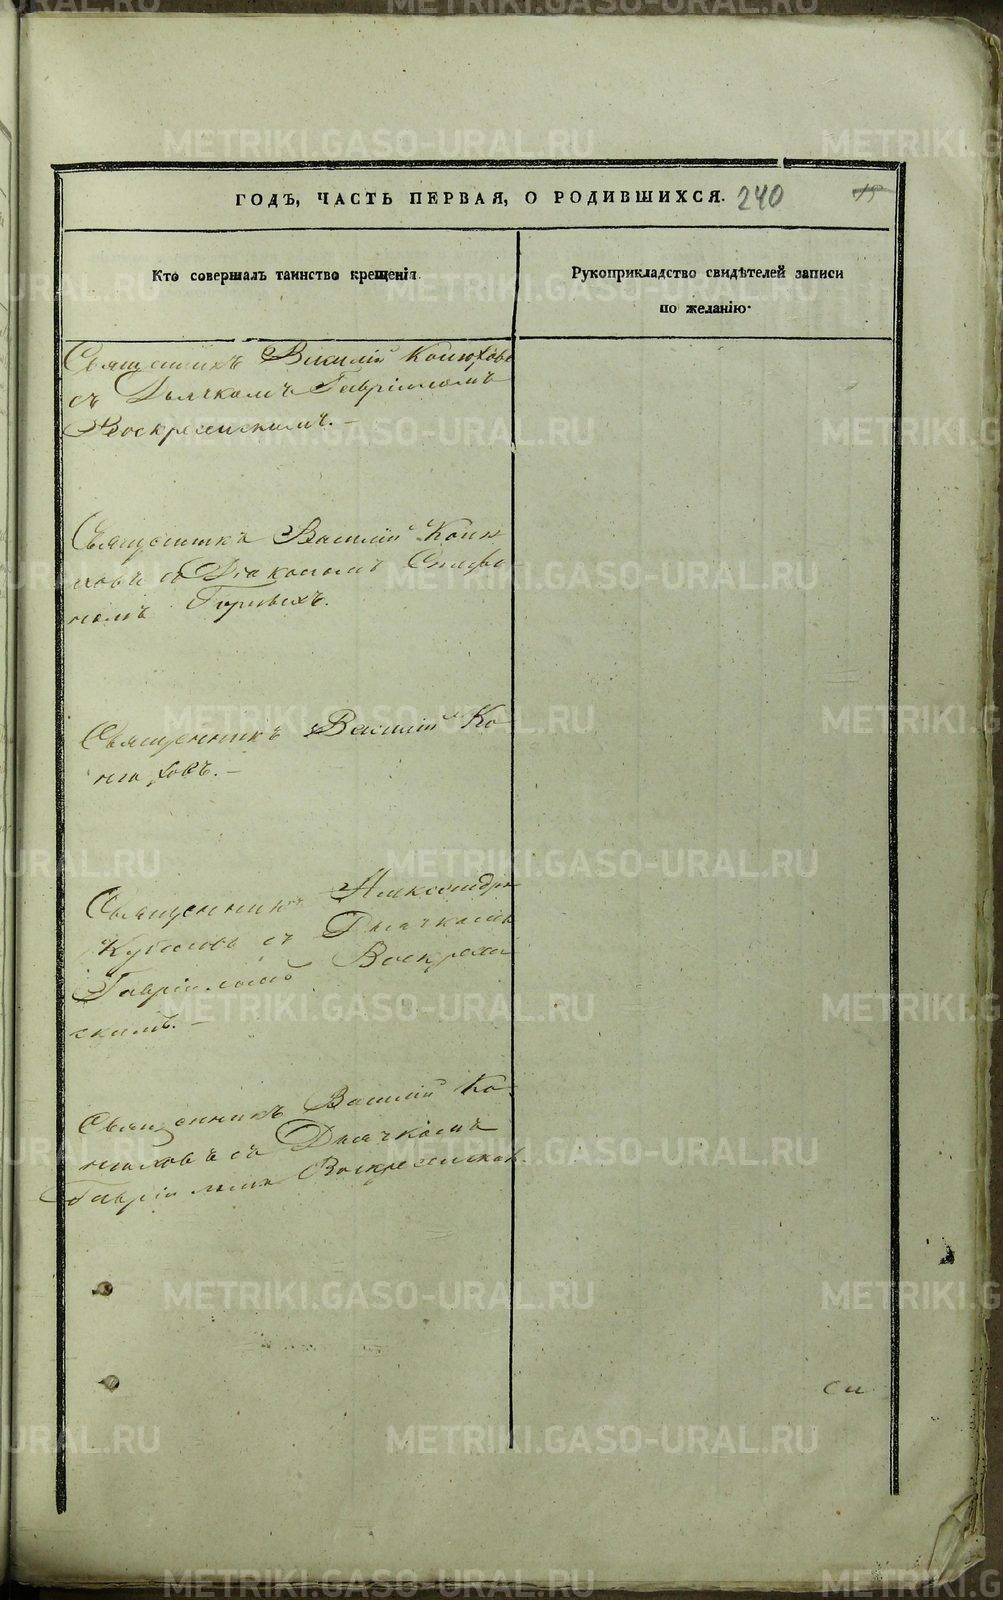 ГОДЪ, ЧАСТЬ ПЕРВАЯ, О РОДИВШИХСЯ. 240
Кто совершалъ таинство крещенія
Рукоприкладство свидѣтелей записи
по желанію.
Священникъ Василій Конюховъ
съ Дьячкомъ Гавріиломъ
Воскресенскимъ. —
Священникъ Василій Коню
ховъ съ Діакономъ Стефа
номъ
Священникъ Василій Ко
нюховъ. —
Священникъ Александръ
съ Дьячкомъ
Гавріиломъ Воскресен
скимъ. —
Священникъ Василій Ко
нюховъ съ Дьячкомъ
Гавріиломъ Воскресенским
METRIKI.GASO-URAL.RU